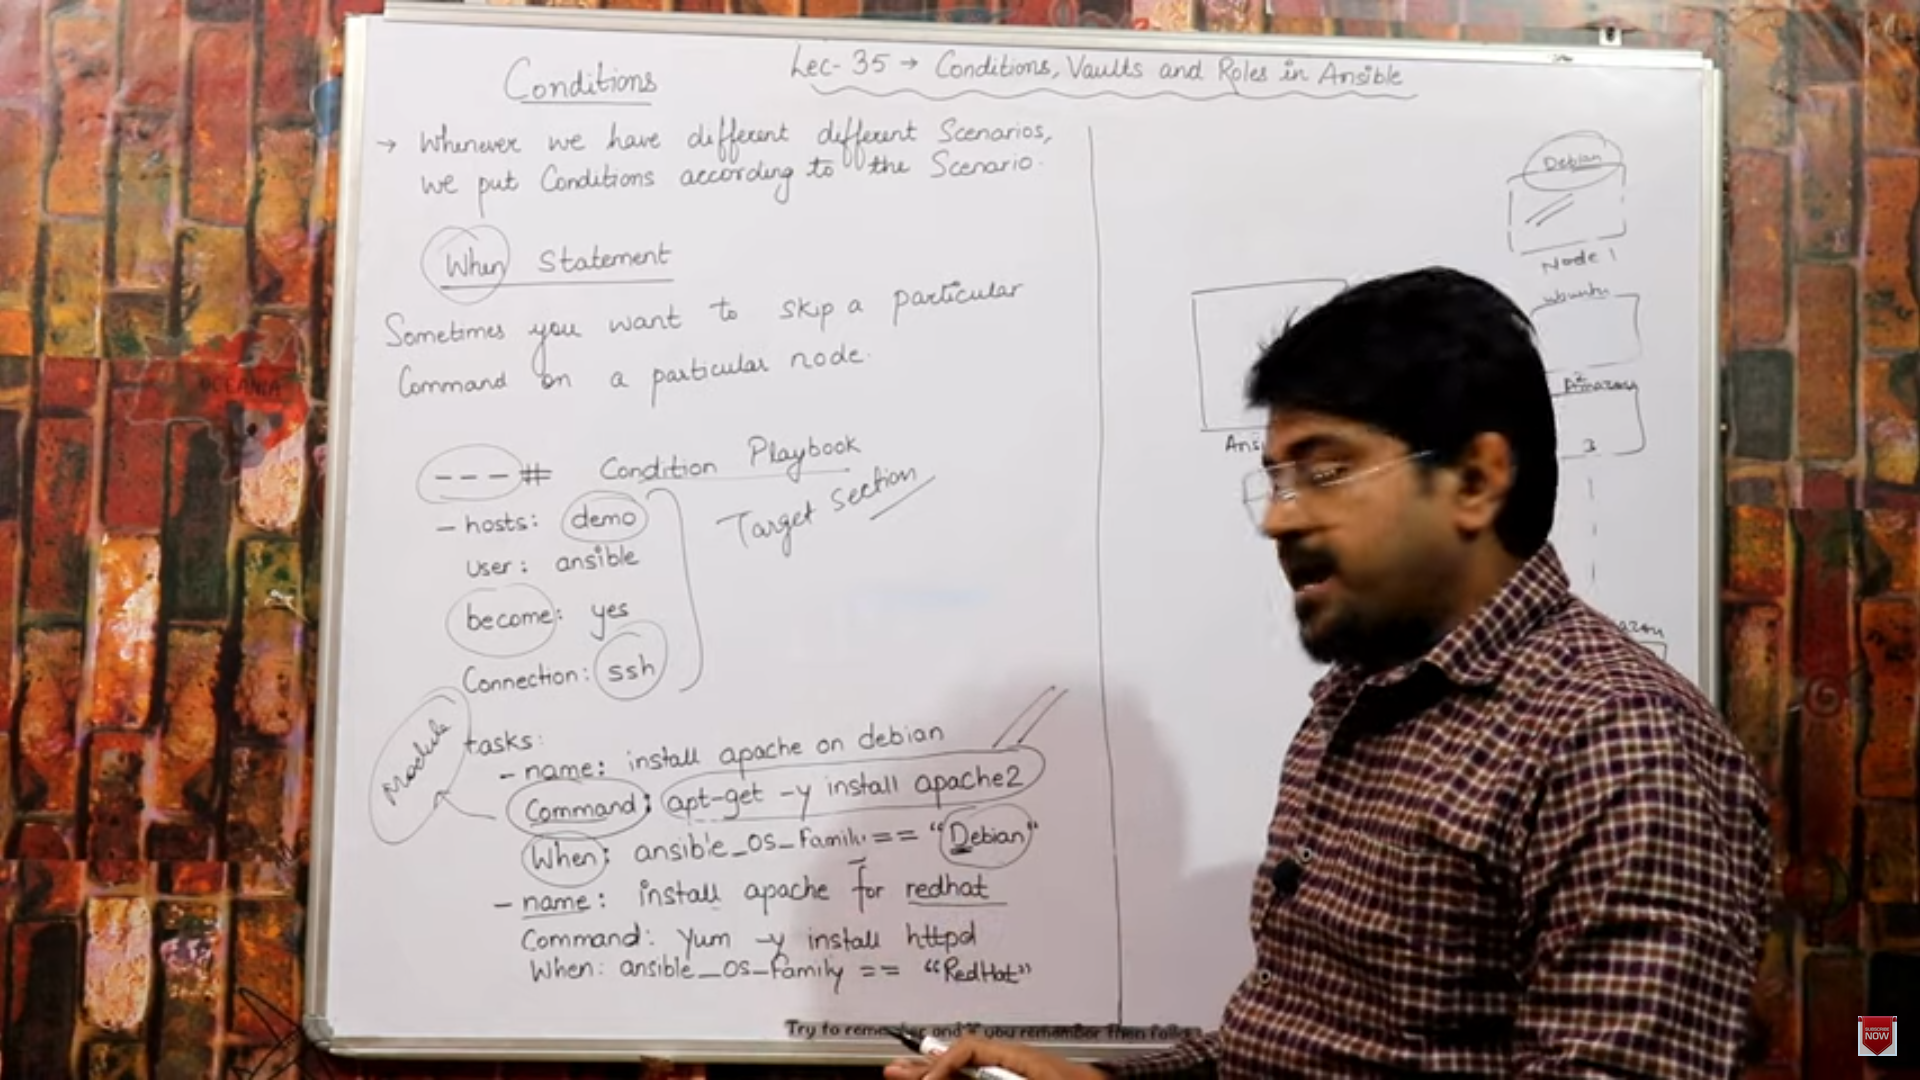 Lec-35 → Conditions, Vaults and Roles in Ansible
Conditions
→ Whenever we have different different Scenarios,
we put Conditions according to the Scenario.
When Statement
Sometimes you want to skip a particular
Command on a particular node.
---# Condition Playbook
- hosts: demo
user: ansible
become: yes
Connection: ssh
Target Section
Module
tasks:
- name: install apache on debian
Command: apt-get -y install apache2
When: ansible_os_Family == "Debian"
- name: install apache for redhat
Command: yum -y install httpd
When: ansible_os_Family == "RedHat"
Debian
Node 1
ubuntu
2
Amazon
3
OCEANIA
Try to remember and if you remember then
SUBSCRIBE
NOW